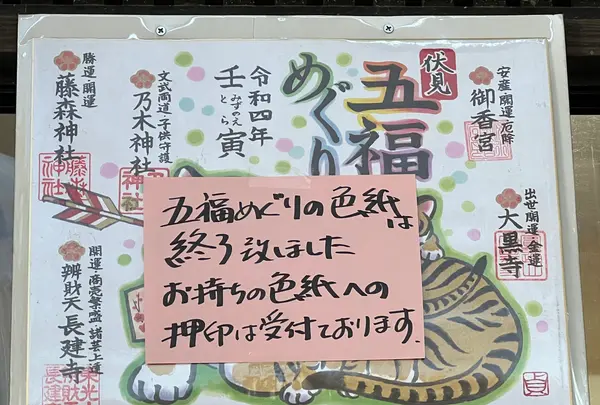 伏見
五福
めぐり
令和四年
壬寅
みずのえ
とら
安産・開運・厄除
御香宮
出世・開運・金運
大黒寺
文武両道・子供守護
乃木神社
勝運・開運
藤森神社
開運・商売繁盛・諸芸上達
辨財天長建寺
五福めぐりの色紙は
終了致しました
お持ちの色紙への
押印は受付ております.